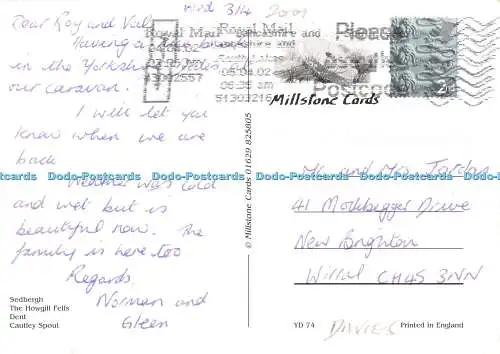 Wed 3/4 2002
Dear Roy and Val,
Having a few
in the Yorkshire Dales in
our caravan.
I will let you
know when we are
back
Weather was cold
and wet but is
beautiful now. The
family is here too
Regards.
Norman and
Royal Mail
Royal Mail
Lancashire and
05.04.02
Please
Postcode
Millstone Cards
© Millstone Cards 01629 825805
Mr and Mrs Jordan
41 Mockbeggar Drive
New Brighton
Wirral CH45 3NN
DAVIES
Sedbergh
The Howgill Fells
Dent
Cautley Spout
YD 74
Printed in England
Dodo-Postcards Dodo-Postcards Dodo-Postcards Dodo-Postcards Dodo-Postcards Dodo-Postcards